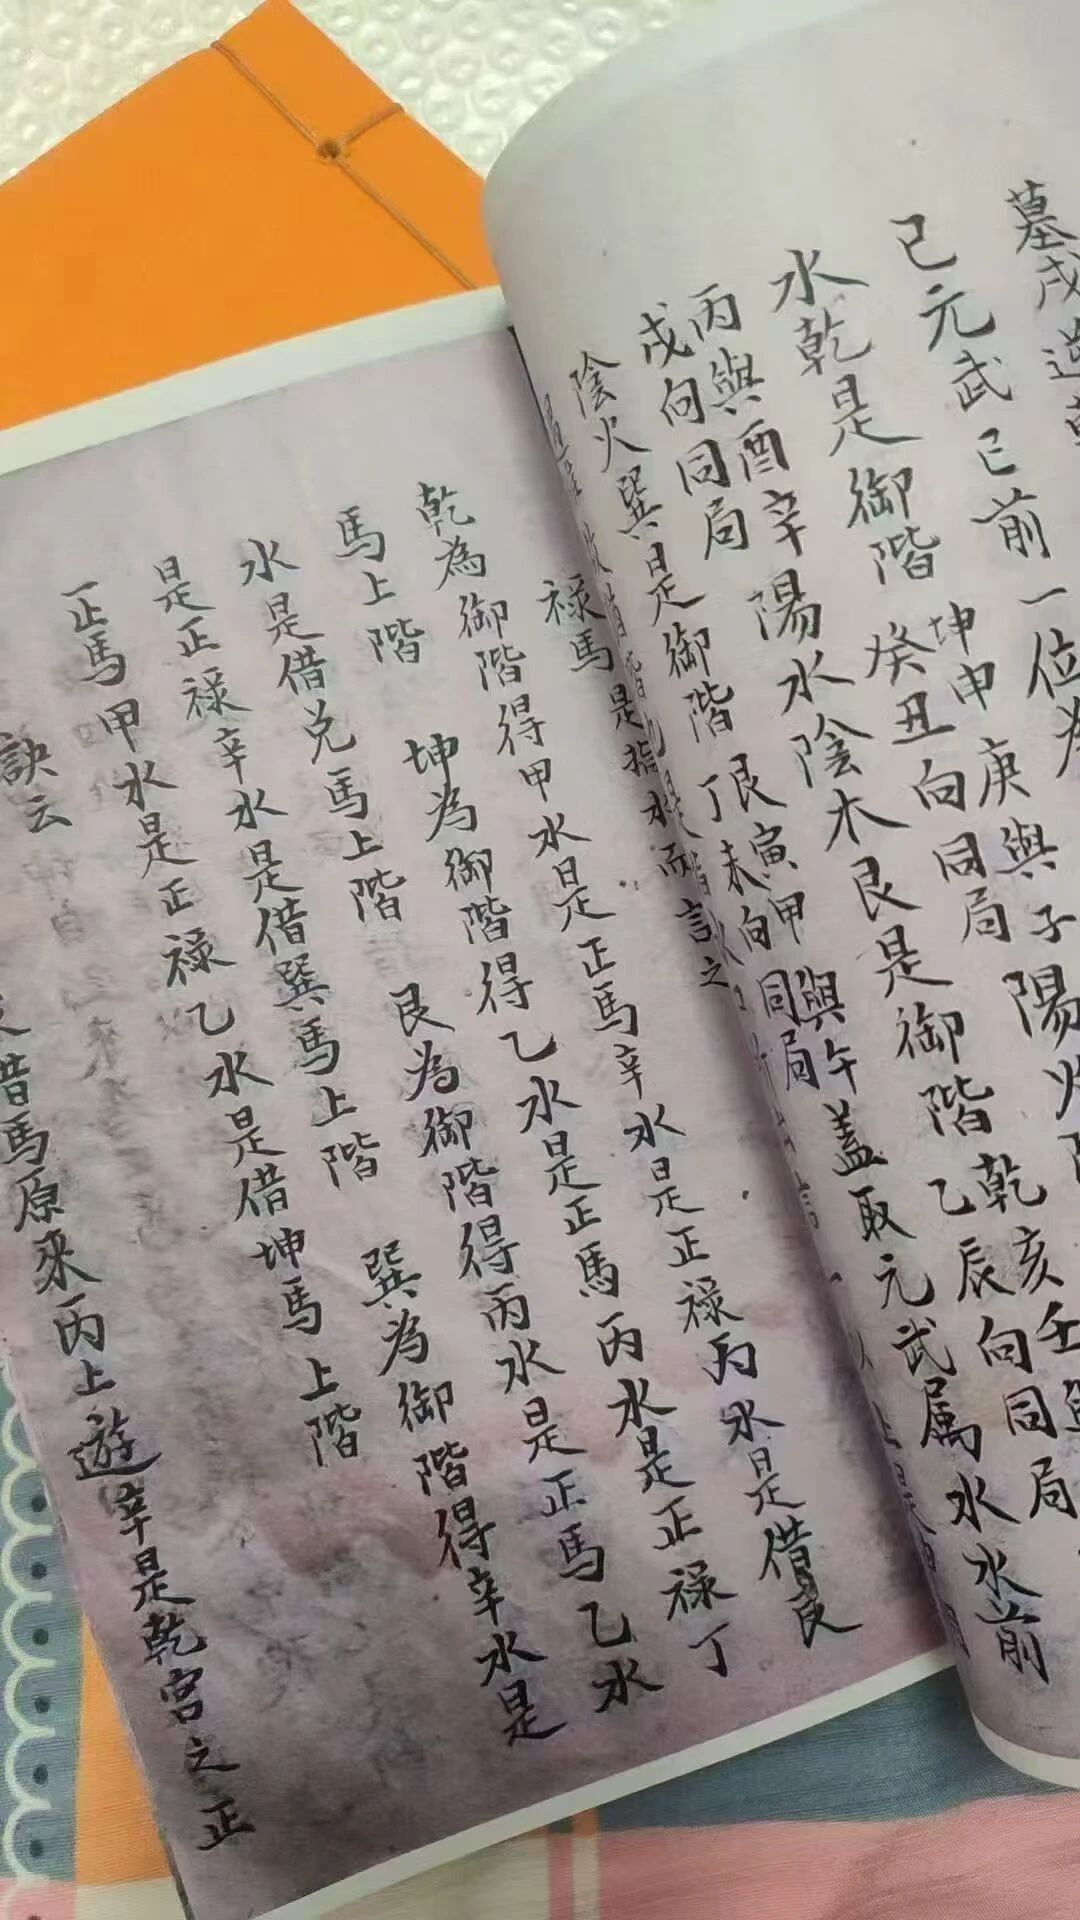 墓戌逆乾
己元武己前一位為
坤申庚與子陽火
水乾是御階癸丑向同局乾亥壬與
丙與酉辛陽水陰木艮是御階乙辰向同局
戌向同局艮寅甲與午蓋取元武属水水前
陰火巽是御階丁未向同局
禄馬是指水而言之
乾為御階得甲水是正馬辛水是正禄丙水是借艮
馬上階 坤為御階得乙水是正馬丙水是正禄丁
水是借兑馬上階 艮為御階得丙水是正馬乙水
是正禄辛水是借巽馬上階 巽為御階得辛水是
正馬甲水是正禄乙水是借坤馬上階
訣云
借馬原來丙上遊辛是乾宮之正